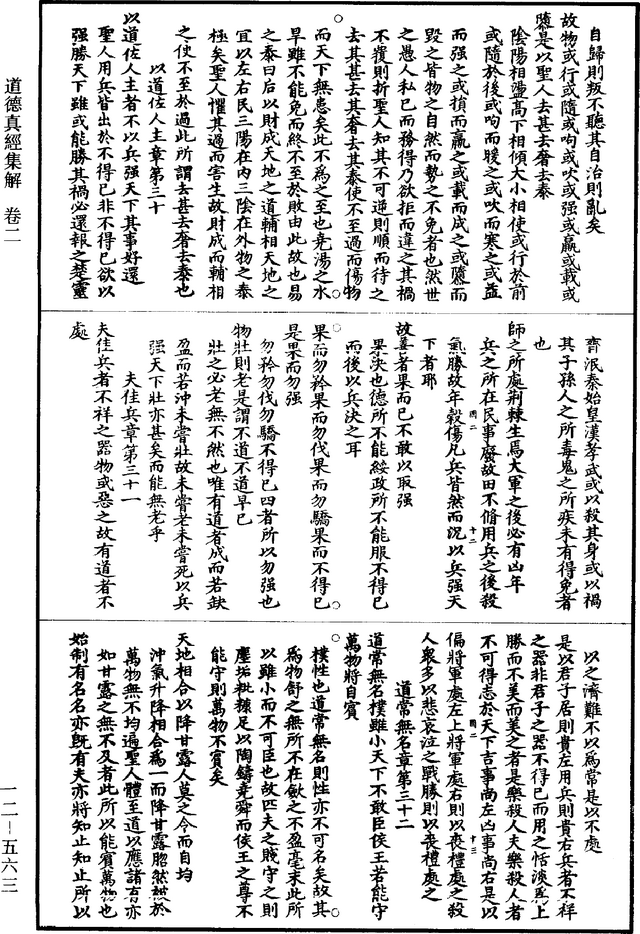 道德真經集解　卷二
自歸則叛不聽其自治則亂矣
故物或行或隨或呴或吹或强或羸或載或
隳是以聖人去甚去奢去泰
陰陽相盪高下相傾大小相使或行於前
或隨於後或呴而暖之或吹而寒之或益
而强之或損而羸之或載而成之或隳而
毀之皆物之自然而勢之不免者也然世
之愚人私已而務得乃欲拒而違之其禍
不覆則折聖人知其不可逆則順而待之
去其甚去其奢去其泰使不至過而傷物
而天下無患矣此不為之至也堯湯之水
旱雖不能免而終不至於敗由此故也易
之泰曰后以財成天地之道輔相天地之
宜以左右民三陽在內三陰在外物之泰
極矣聖人懼其過而害生故財成而輔相
之使不至於過此所謂去甚去奢去泰也
以道佐人主章第三十
以道佐人主者不以兵强天下其事好還
聖人用兵皆出於不得已非不得已欲以
强勝天下雖或能勝其禍必還報之楚靈
齊泯秦始皇漢孝武或以殺其身或以禍
其子孫人之所毒鬼之所疾未有得免者
也
師之所處荆棘生焉大軍之後必有凶年
兵之所在民事廢故田不脩用兵之後殺
氣勝故年穀傷凡兵皆然而況以兵强天
下者耶
故善者果而已不敢以取强
果決也德所不能綏政所不能服不得已
而後以兵決之耳
果而勿矜果而勿伐果而勿驕果而不得已
是果而勿强
勿矜勿伐勿驕不得已四者所以勿强也
物壯則老是謂不道不道早已
壯之必老無不然也唯有道者成而若缺
盈而若沖未嘗壯故未嘗老未嘗死以兵
强天下壯亦甚矣而能無老乎
夫佳兵章第三十一
夫佳兵者不祥之器物或惡之故有道者不
處
以之濟難不以為常是以不處
是以君子居則貴左用兵則貴右兵者不祥
之器非君子之器不得已而用之恬淡為上
勝而不美而美之者是樂殺人夫樂殺人者
不可得志於天下吉事尚左凶事尚右是以
偏將軍處左上將軍處右則以喪禮處之殺
人衆多以悲哀泣之戰勝則以喪禮處之
道常無名章第三十二
道常無名樸雖小天下不敢臣侯王若能守
萬物將自賓
樸性也道常無名則性亦不可名矣故其
為物舒之無所不在斂之不盈毫末此所
以雖小而不可臣也故匹夫之賤守之則
塵垢粃糠足以陶鑄堯舜而侯王之尊不
能守則萬物不賓矣
天地相合以降甘露人莫之令而自均
沖氣升降相合為一而降甘露脗然被於
萬物無不均遍聖人體至道以應諸有亦
如甘露之無不及者此所以能賓萬物也
始制有名名亦既有夫亦將知止知止所以
一二—五六三